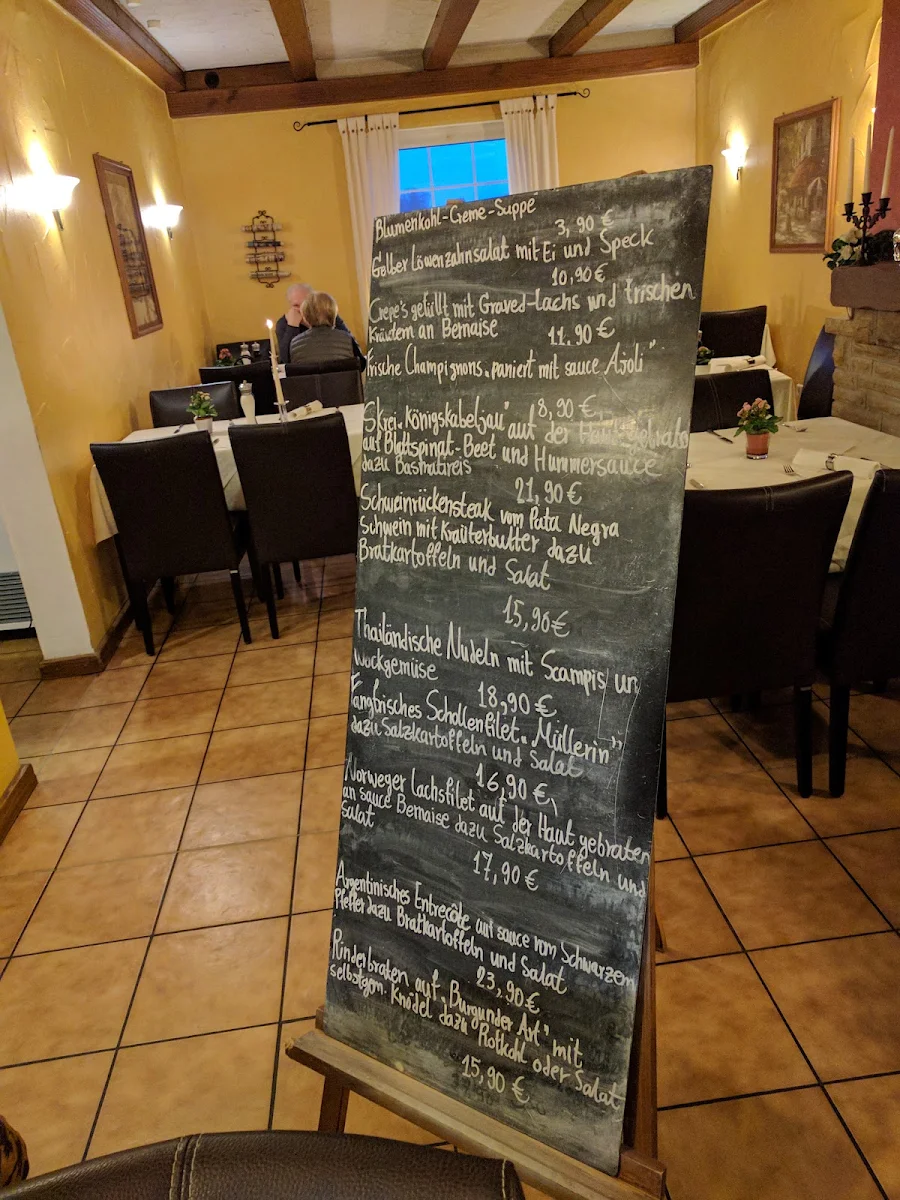 Blumenkohl-Creme-Suppe
3,90 €
Gelber Löwenzahnsalat mit Ei und Speck
10,90 €
Crepe's gefüllt mit Graved-Lachs und frischen
Kräutern an Bernaise
11.90 €
frische Champignons „paniert mit sauce Ajoli"
8,90 €
Skrei „Königskabeljau" auf der Haut gebraten
auf Blattspinat-Beet und Hummersauce
dazu Basmatireis
21,90 €
Schweinrückensteak vom Pata Negra
Schwein mit Kräuterbutter dazu
Bratkartoffeln und Salat
15,90 €
Thailändische Nudeln mit Scampis un
Wockgemüse
18,90 €
Fangfrisches Schollenfilet „Müllerin"
dazu Salzkartoffeln und Salat
16,90 €
Norweger Lachsfilet auf der Haut gebraten
an sauce Bernaise dazu Salzkartoffeln und
Salat
17,90 €
Argentinisches Entrecôte auf sauce vom Schwarzem
Pfeffer dazu Bratkartoffeln und Salat
23,90 €
Rinderbraten auf „Burgunder Art" mit
selbstgem. Knödel dazu Rotkohl oder Salat
15,90 €